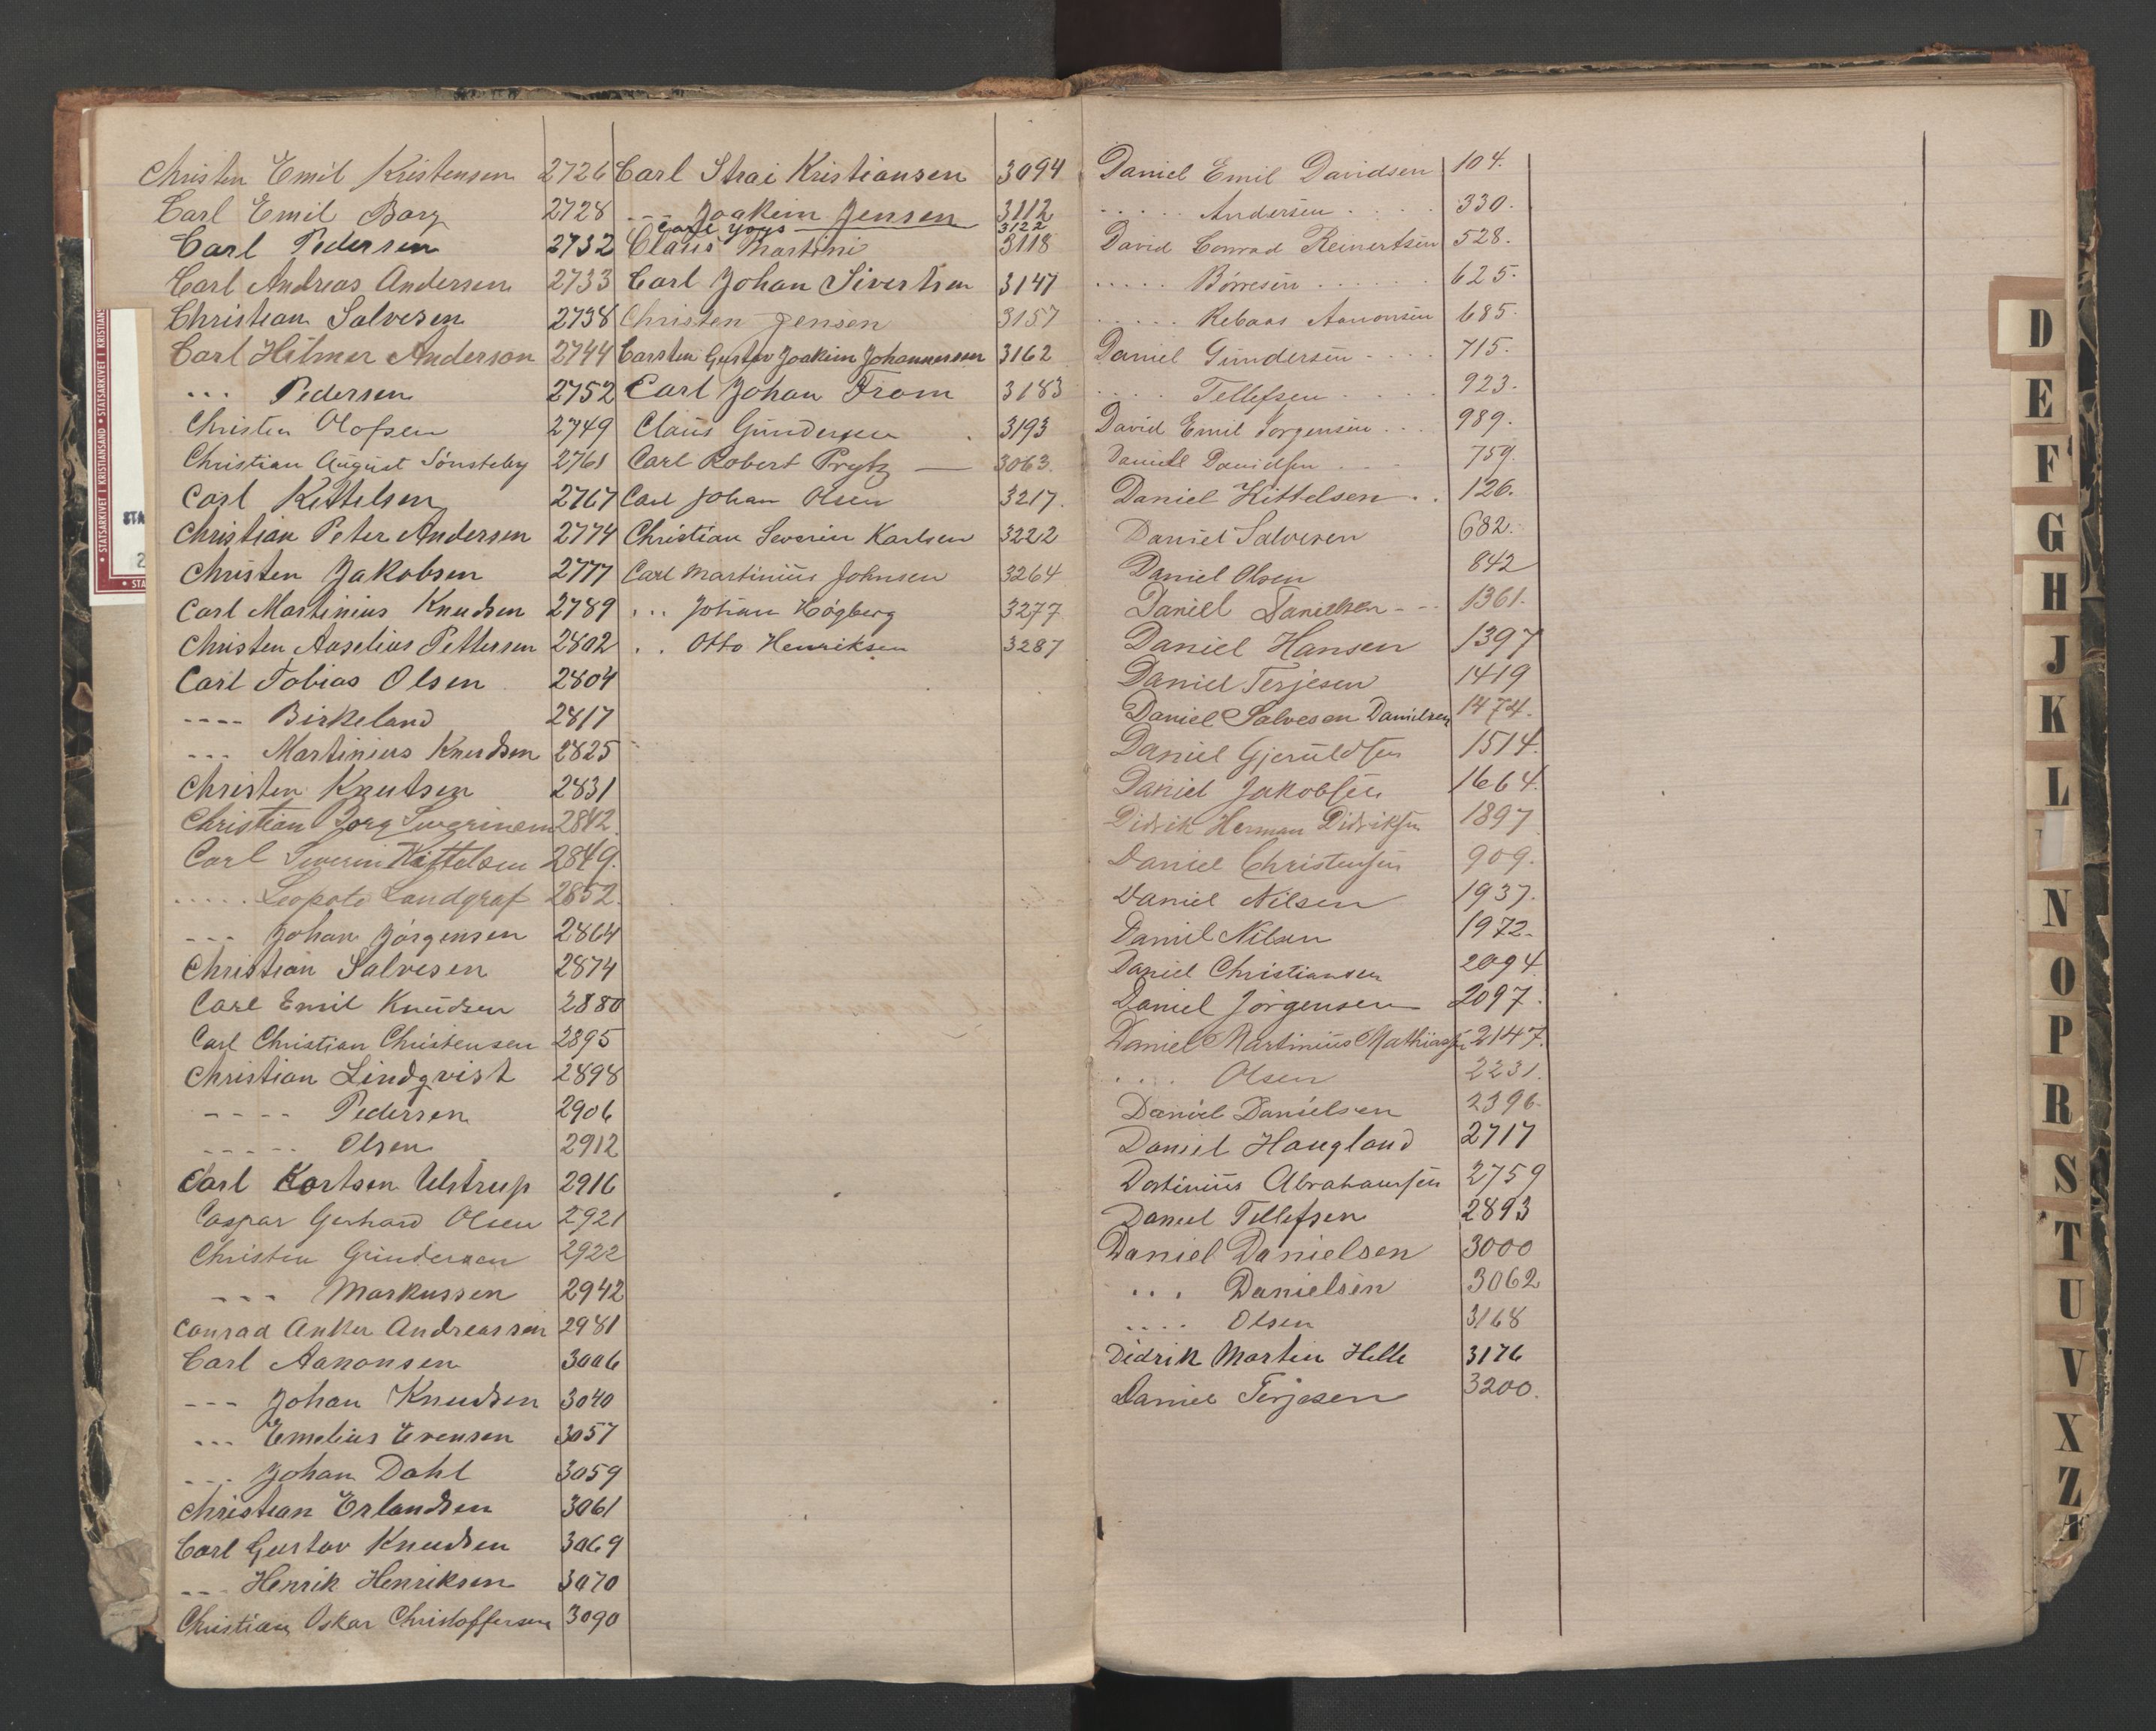 Christen Emil Kristensen 2726
Carl Emil Borg 2728
Carl Pedersen 2732
Carl Andreas Andersen 2733
Christian Salvesen 2738
Carl Hilmer Anderson 2744
... Pedersen 2752
Christen Olafsen 2749
Christian August Sønsteby 2761
Carl Kittelsen 2767
Christian Peter Andersen 2774
Christen Jakobsen 2777
Carl Martinius Knudsen 2789
Christen Anselius Pettersen 2802
Carl Tobias Olsen 2804
---- Birkeland 2817
--- Martinius Knudsen 2825
Christen Knutsen 2831
Christian Borg 2842.
Carl Severin Kittelsen 2849.
..... Leopold Landgraf 2852.
--- Johan Jørgensen 2864
Christian Salvesen 2874
Carl Emil Knudsen 2880
Carl Christian Christensen 2895
Christian Lindqvist 2898
---- Pedersen 2906
----- Olsen 2912
Carl Kortsen Ulstrup 2916
Caspar Gerhard Olsen 2921
Christen Gundersen 2922
--- Markussen 2942
Conrad Anker Andreassen 2981
Carl Aanonsen 3006
--- Johan Knudsen 3040
... Emelius Evensen 3057
... Johan Dahl 3059
Christian Erlandsen 3061
Carl Gustav Knudsen 3069
--- Henrik Henriksen 3070
Christian Oskar Christoffersen 3090
Carl Strai Kristiansen 3094
--- Joakim Jensen 3112
Carl 3122
Claus Martini 3118
Carl Johan Sivertsen 3147
Christen Jensen 3157
Carsten Gustav Joakim Johannessen 3162
Carl Johan From 3183
Claus Gundersen . 3193
Carl Robert Prytz — 3063.
Carl Johan Olsen 3217.
Christian Severin Karlsen 3222
Carl Martinius Johnsen 3264
... Johan Høgberg 3277
.. Otto Henriksen 3287
Daniel Emil Davidsen 104.
..... Andersen .... 330.
David Conrad Reinertsen 528.
..... Børresen ...... 625.
..... Aanonsen 685.
Daniel Gundersen .... 715.
.... Tellefsen .... 923.
David Emil Jørgensen ... 989.
Daniel Davidsen .... 759.
Daniel Kittelsen .. 126.
Daniel Salvesen 682.
Daniel Olsen 842
Daniel Danielsen --- 1361.
Daniel Hansen 1397
Daniel Terjesen 1419
Daniel Salvesen Danielsen 1474.
Daniel Gjeruldsen 1514.
Daniel Jakobsen 1664.
Didrik Herman Didriksen 1897
Daniel Christensen 909.
Daniel Nilsen 1937.
Daniel Nilsen 1972.
Daniel Christiansen 2094.
Daniel Jørgensen 2097.
Daniel Martinius Mathiassen 2147.
.... Olsen 2231.
Daniel Danielsen 2396.
Daniel Haugland 2717
Abrahamsen 2759
Daniel Tellefsen 2893
Daniel Danielsen 3000
... Danielsen 3062
.... Olsen 3168
Didrik Martin Helle 3176
Daniel Terjesen 3200.
D
E
F
G
H
J
K
L
N
O
P
R
S
T
U
V
X
Z
Æ
• STATSARKIVET I KRISTIANSAND • STATSARKIVET I KRISTIANS
STA
2
• STA